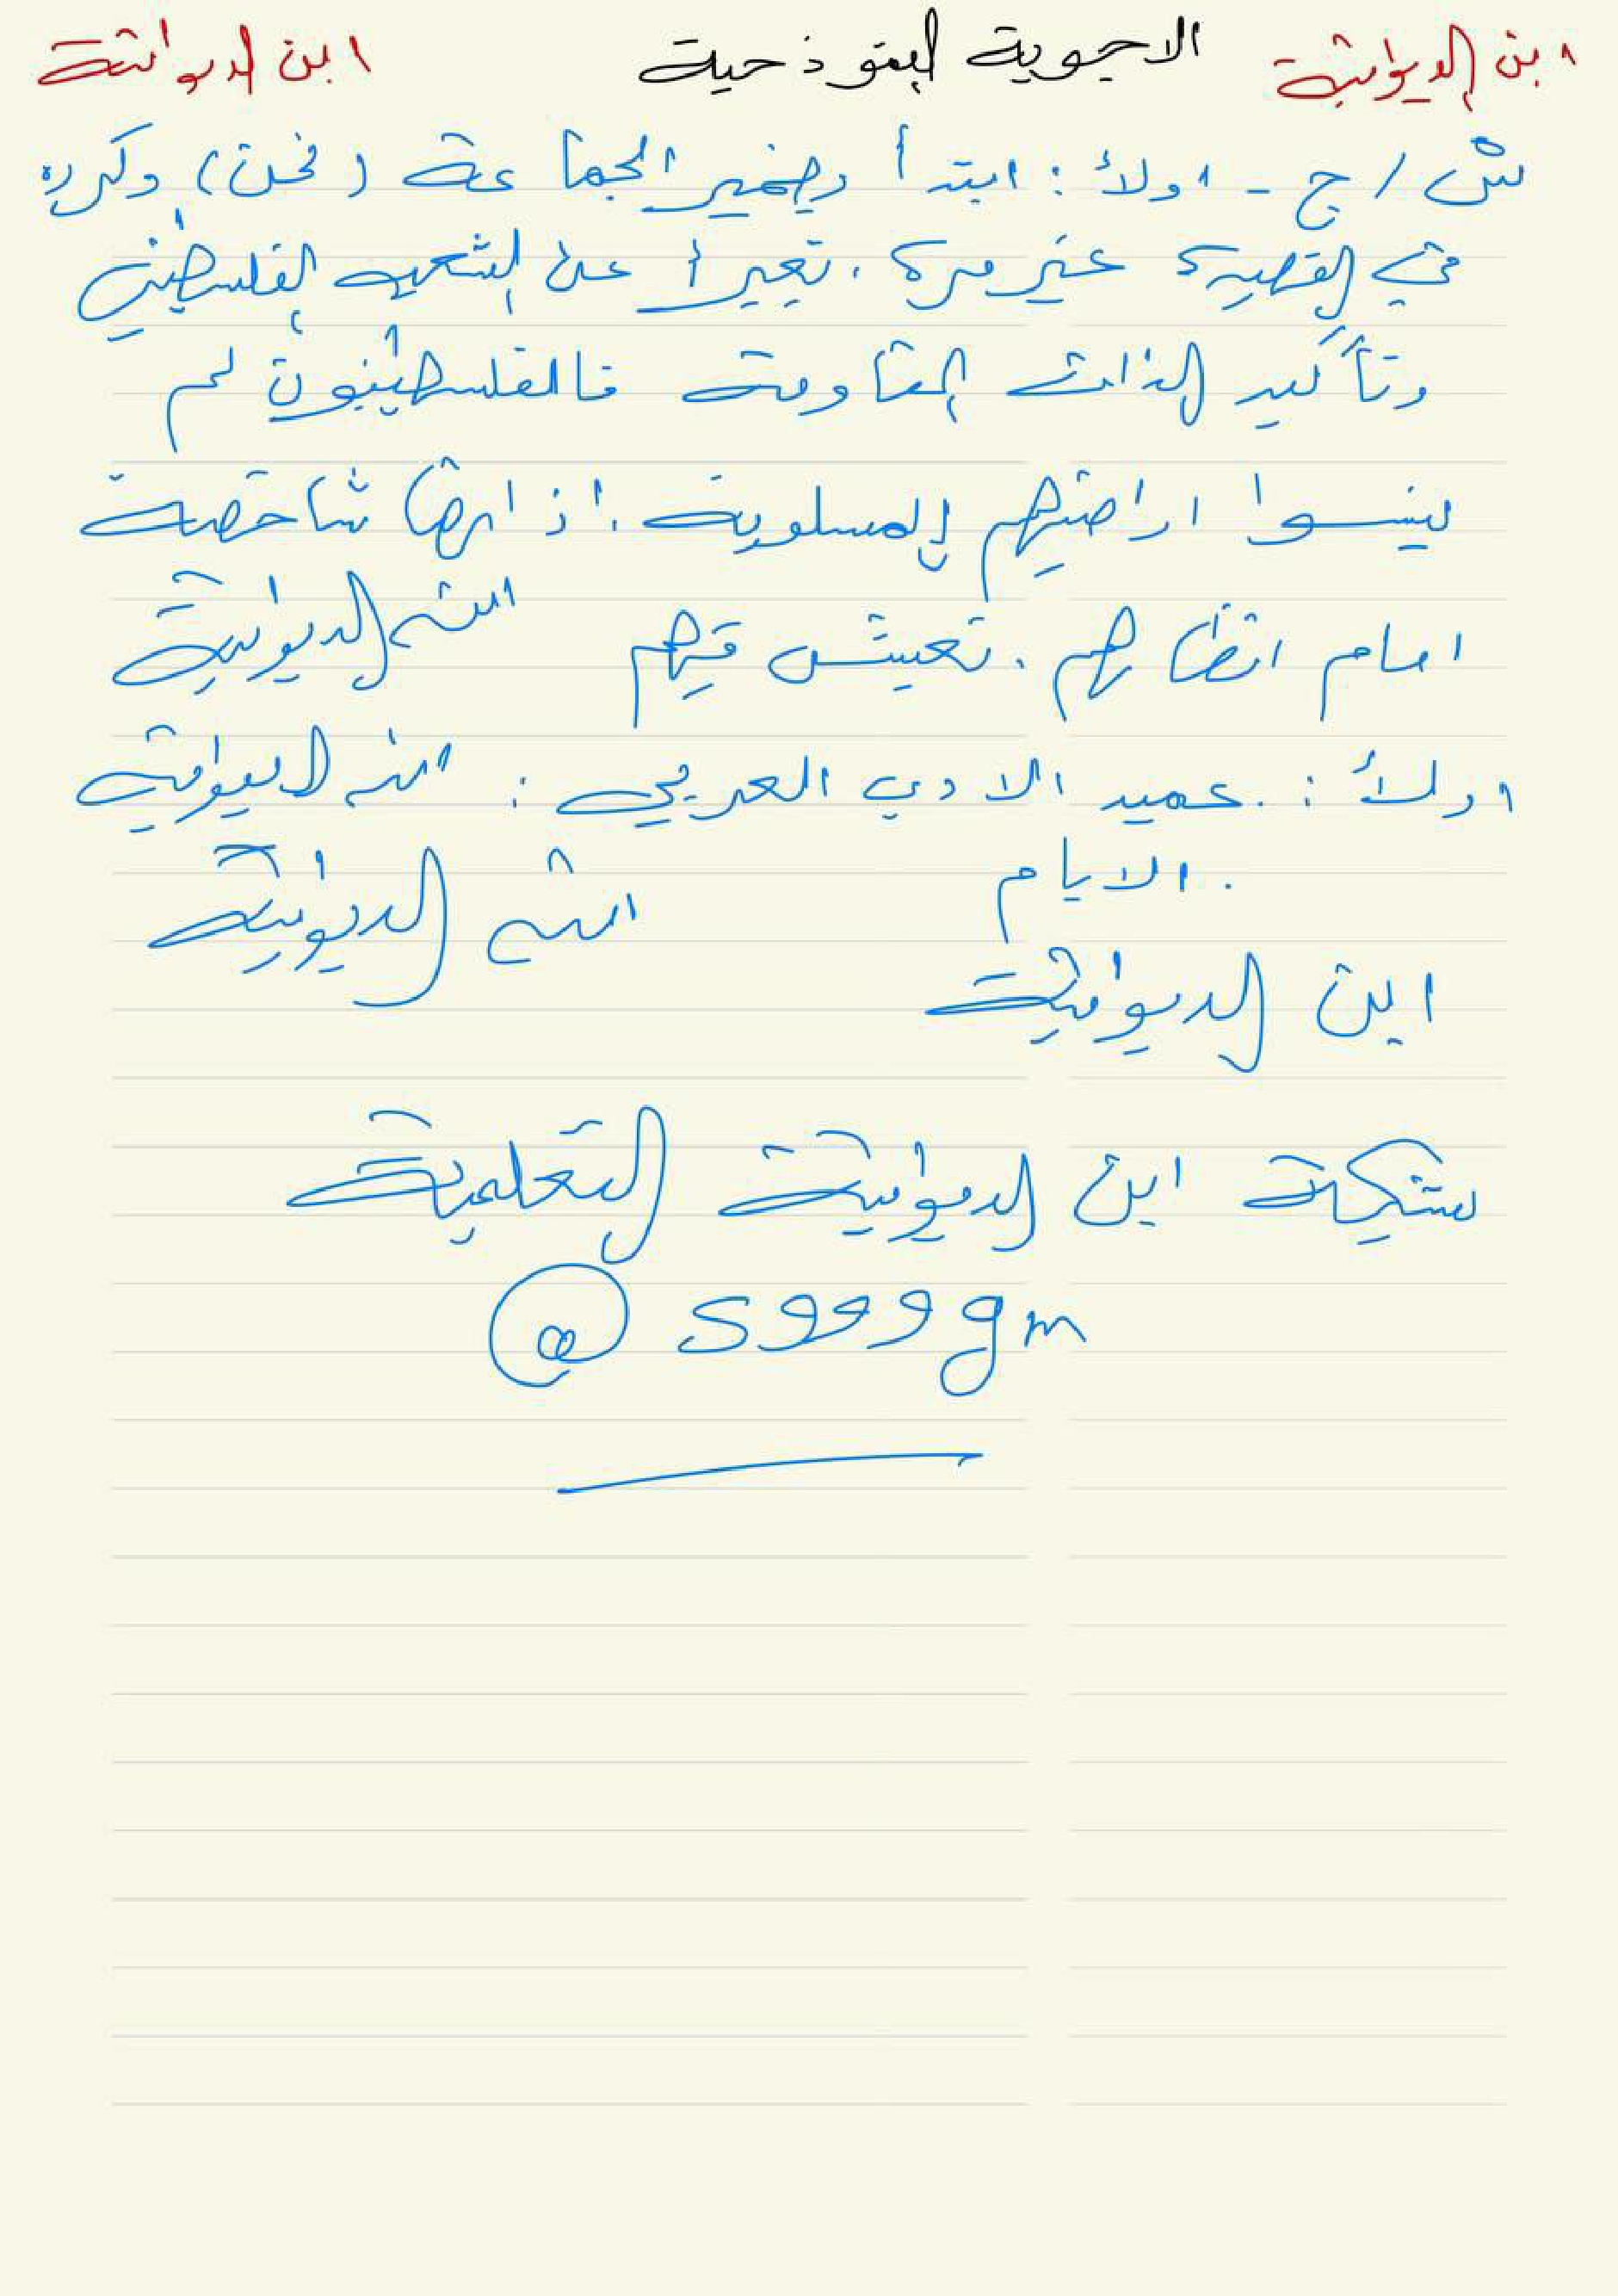 ابن الديوانية الاجوبة النموذجية ابن الديوانية
س / ج - اولاً : ابتدأ بضمير الجماعة (نحن) وكرره
في القصيدة غير مرة ، تعبيراً عن الشعب الفلسطيني
وتأكيد الذات المقاومة فالفلسطينيون لم
ينسوا اراضيهم المسلوبة ، اذ انها شاخصة
امام انظارهم ، تعيش فيهم ابن الديوانية
اولاً : عميد الادب العربي : ابن الديوانية
. الايام
ابن الديوانية
ابن الديوانية
شبكة ابن الديوانية التعليمية
@s999gm